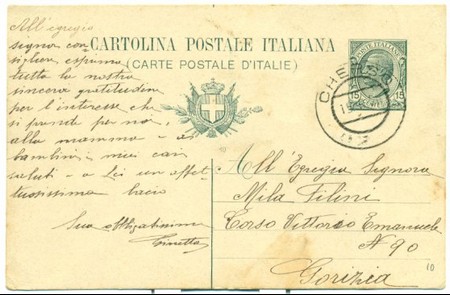 All'egregio
signor con=
sigliere esprima
tutta la nostra
sincera gratitudine
per l'interesse che
si prende per noi,
alla mamma - ai
bambini i miei cari
saluti - a Lei un affet=
tuosissimo bacio
Sua obbligatissima
CARTOLINA POSTALE ITALIANA
(CARTE POSTALE D'ITALIE)
POSTE ITALIANE
15 15
CHERSO
All'Egregia Signora
Mila Filini
Corso Vittorio Emanuele
N 90
Gorizia
10